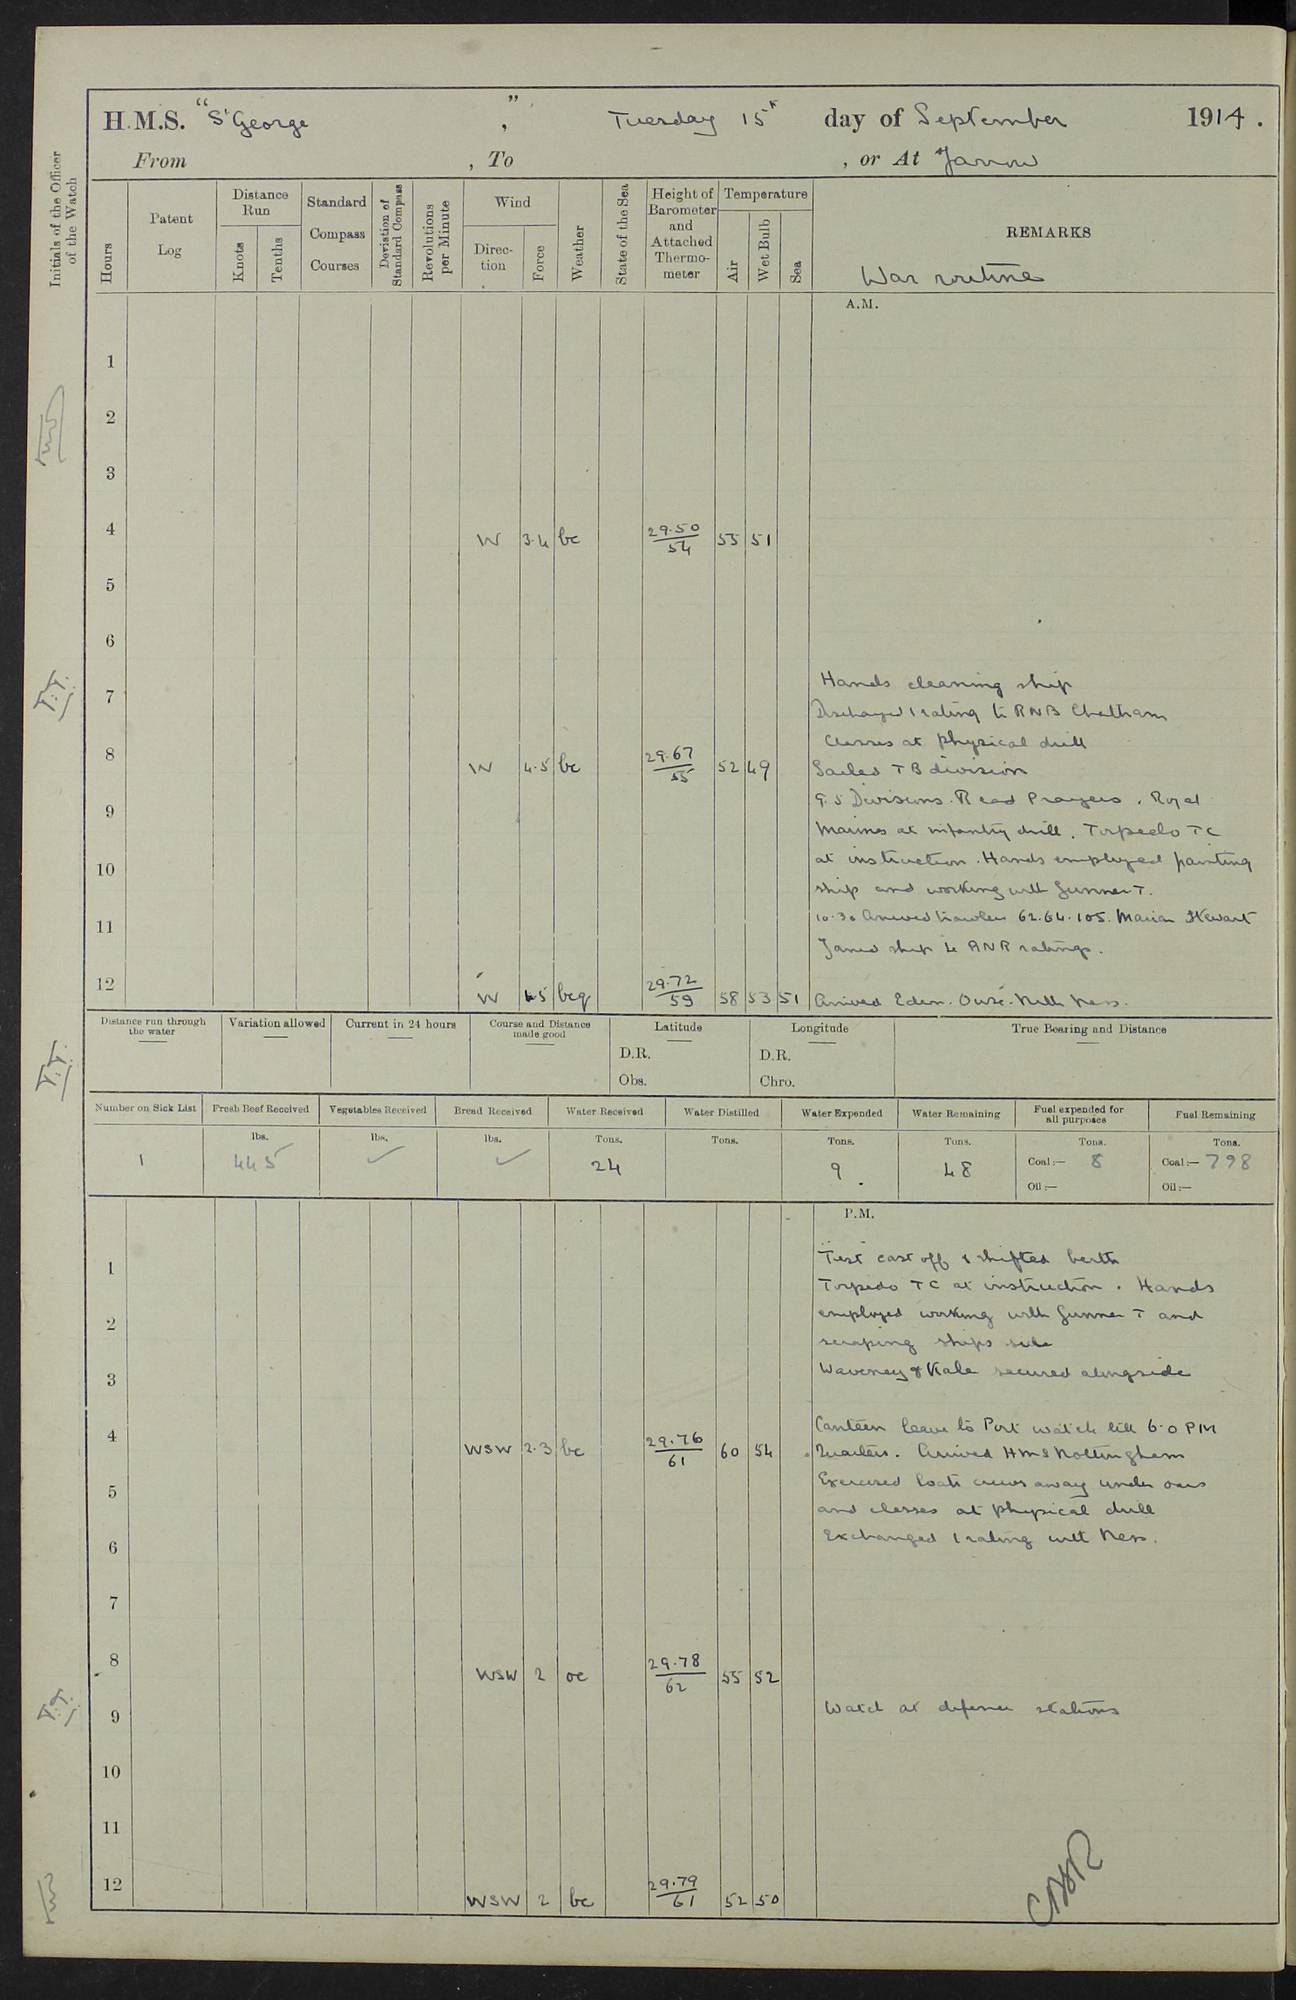 H.M.S. "St George", Tuesday 15th day of September 1914.
From , To , or At Jarrow
Initials of the Officer of the Watch
Hours
Patent Log
Distance Run
Knots
Tenths
Standard Compass Courses
Deviation of Standard Compass
Revolutions per Minute
Wind
Direction
Force
Weather
State of the Sea
Height of Barometer and Attached Thermometer
Temperature
Air
Wet Bulb
Sea
REMARKS
War routine
A.M.
1
2
3
4 W 3.4 bc 29.50/54 55 51
5
6
Hands cleaning ship
7
Discharged 1 rating to RNB Chatham
Classes at physical drill
8 W 4.5 bc 29.67/55 52 49
Sailed TB division
9.5 Divisions. Read Prayers. Royal
9
Marines at infantry drill. Torpedo TC
at instruction. Hands employed painting
10
ship and working with Gunner T.
10.30 Arrived trawlers 62.64.105. Marian Stewart
11
Joined ship 4 RNR ratings.
12 W 4.5 bcq 29.72/59 58 53 51 Arrived Eden. Ouse. Nith Ness.
Distance run through the water
Variation allowed
Current in 24 hours
Course and Distance made good
Latitude
D.R.
Obs.
Longitude
D.R.
Chro.
True Bearing and Distance
Number on Sick List
Fresh Beef Received
Vegetables Received
Bread Received
Water Received
Water Distilled
Water Expended
Water Remaining
Fuel expended for all purposes
Fuel Remaining
lbs. lbs. lbs. Tons. Tons. Tons. Tons. Tons. Tons.
1 445 24 9 48 Coal:— 8 Coal:— 798
Oil:— Oil:—
P.M.
Test cast off & shifted berth
1
Torpedo TC at instruction. Hands
employed working with Gunner T and
2
scraping ships side
Waveney & Kale secured alongside
3
Canteen leave to Port watch till 6.0 PM
4 WSW 2.3 bc 29.76/61 60 54
Quarters. Arrived HMS Nottingham
Exercised boats crews away under oars
5
and classes at physical drill
Exchanged 1 rating with Ness.
6
7
8 WSW 2 oc 29.78/62 55 52
Watch at defence stations
9
10
11
12 WSW 2 bc 29.79/61 52 50
T.T.
T.T.
T.T.